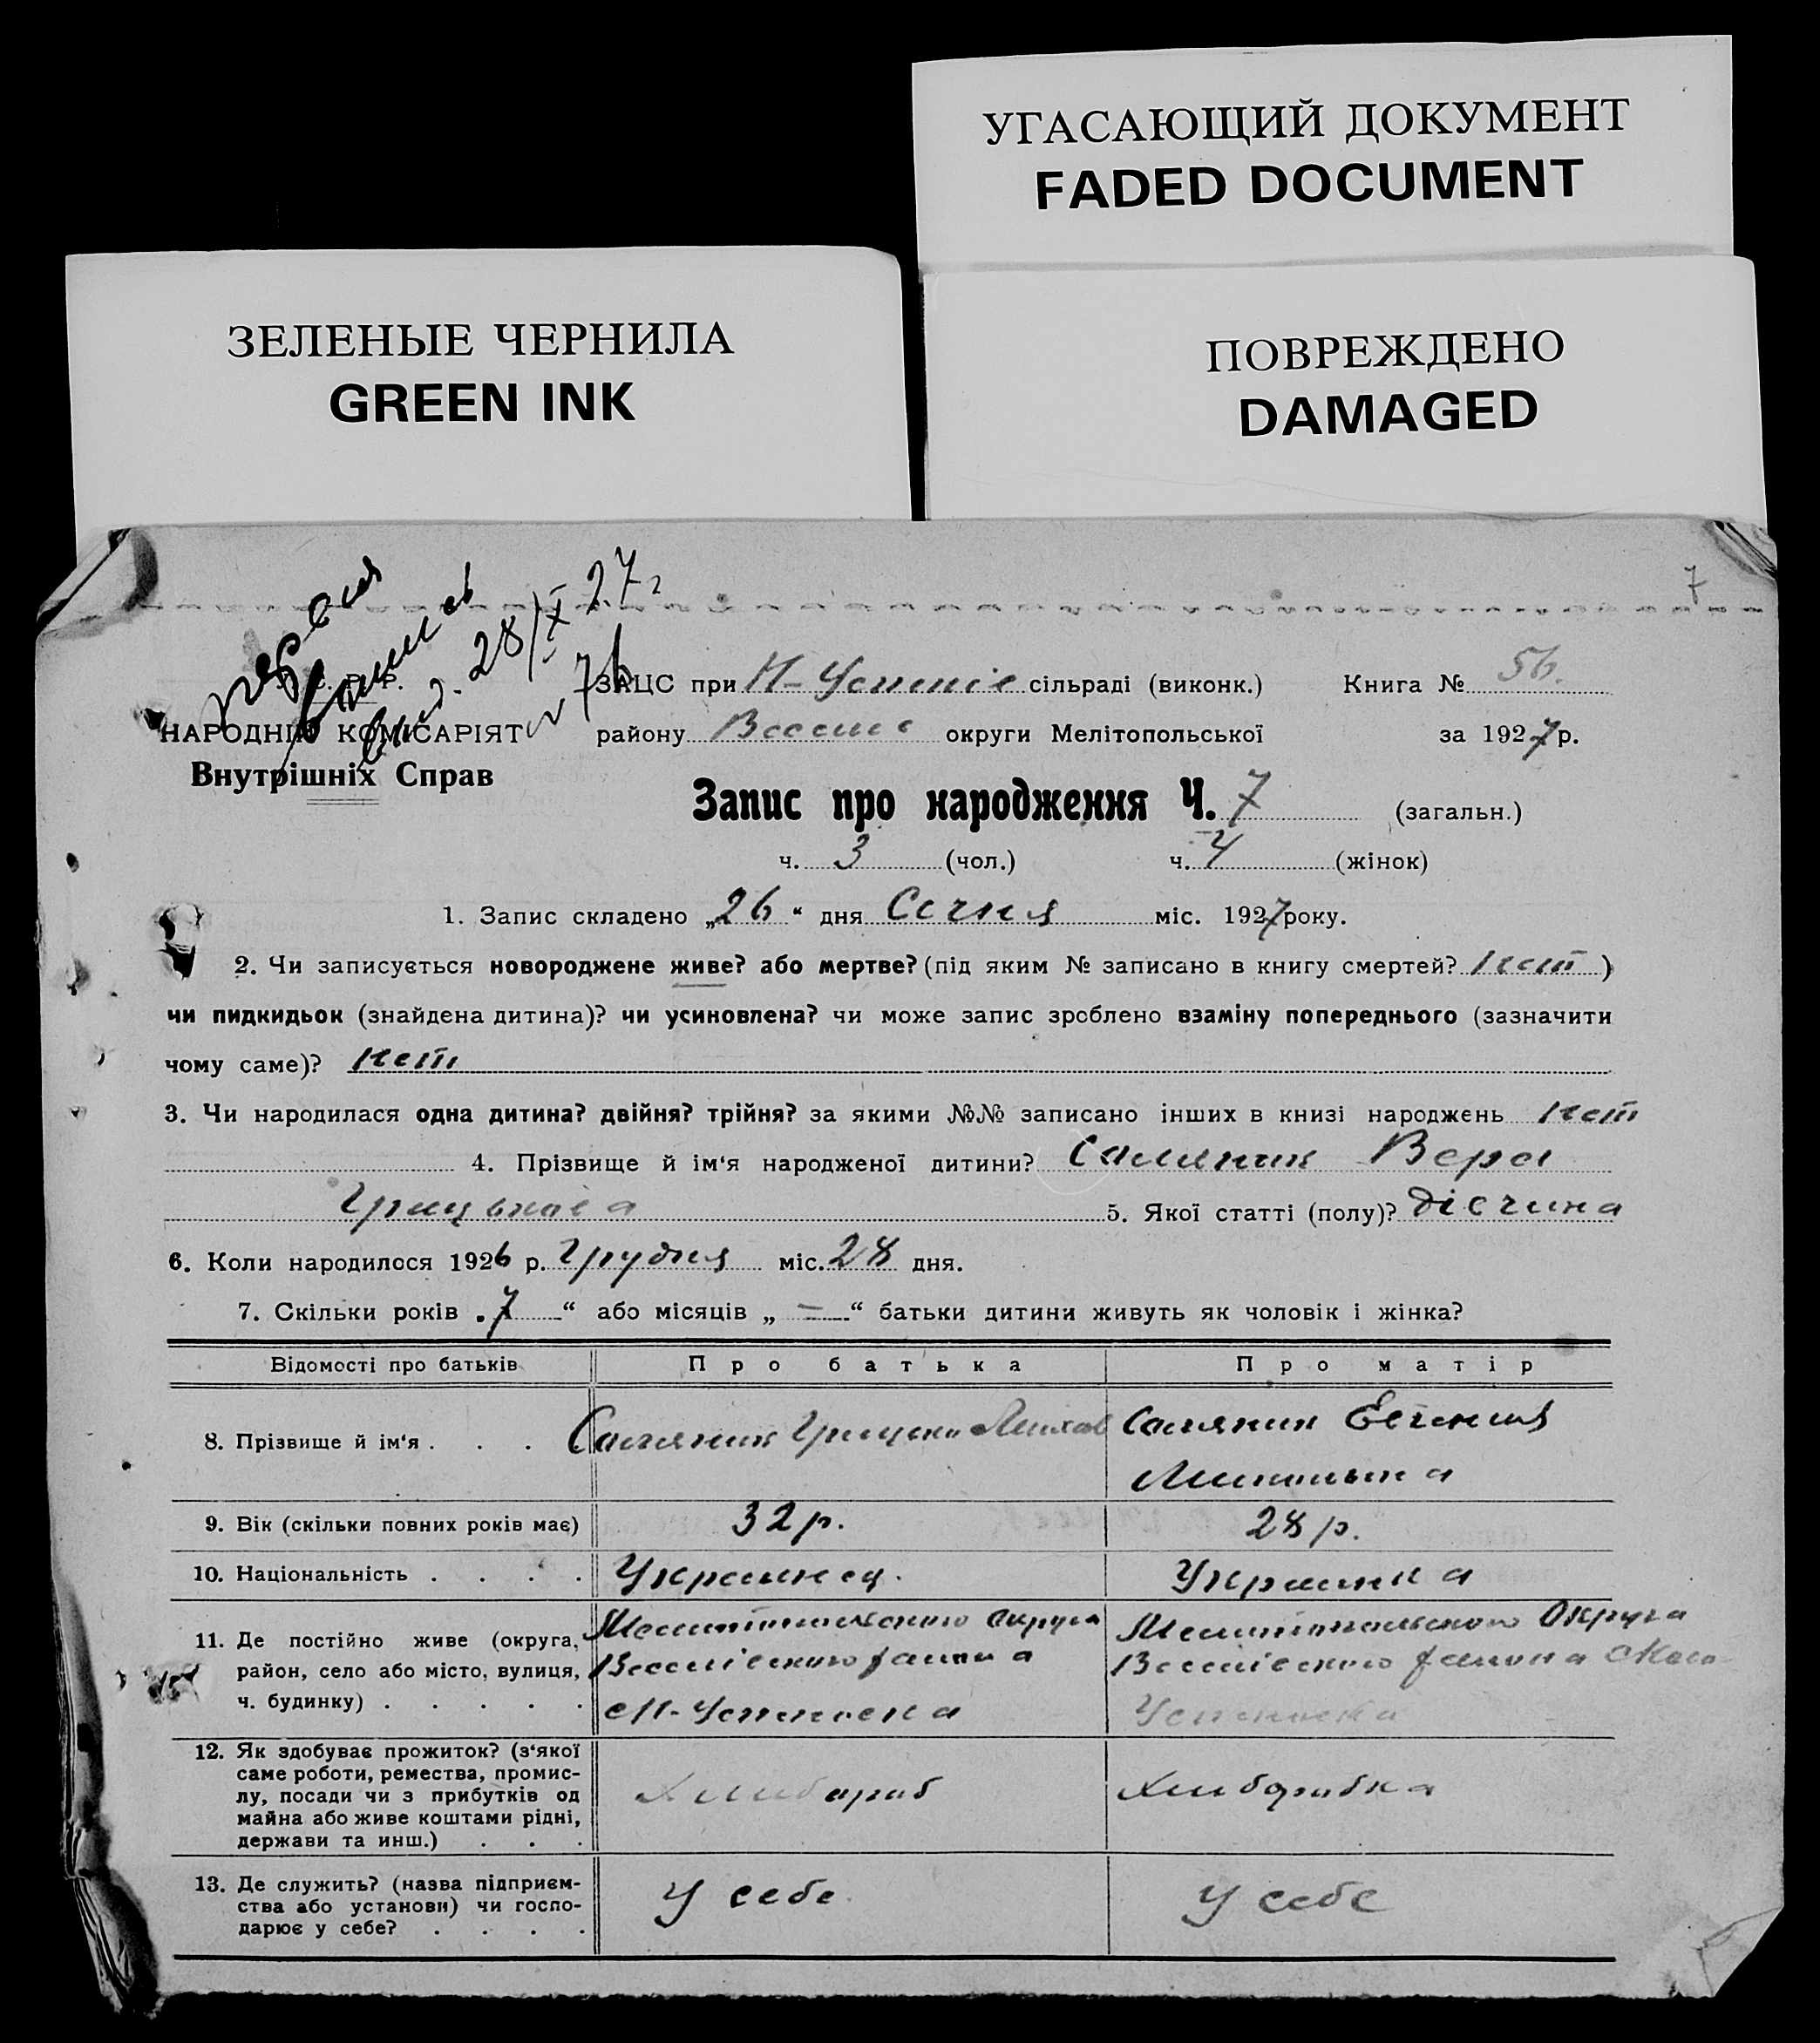 УГАСАЮЩИЙ ДОКУМЕНТ
FADED DOCUMENT
ЗЕЛЕНЫЕ ЧЕРНИЛА
GREEN INK
ПОВРЕЖДЕНО
DAMAGED
7
28/X 27 г
76
НАРОДНІЙ КОМІСАРІЯТ
Внутрішніх Справ
ЗАЦС при Н-Успенів сільраді (виконк.) Книга № 56.
району Веселів округи Мелітопольської за 1927 р.
Запис про народження Ч. 7 (загальн.)
ч. 3 (чол.) ч. 4 (жінок)
1. Запис складено „26“ дня Січня міс. 1927 року.
2. Чи записується новороджене живе? або мертве? (під яким № записано в книгу смертей? нет )
чи пидкидьок (знайдена дитина)? чи усиновлена? чи може запис зроблено взаміну попереднього (зазначити
чому саме)? нет
3. Чи народилася одна дитина? двійня? трійня? за якими №№ записано інших в книзі народжень нет
4. Прізвище й ім‘я народженої дитини? Саляник Вера
Грицьківа 5. Якої статті (полу)? дівчина
6. Коли народилося 1926 р. Грудня міс. 28 дня.
7. Скільки років „7“ або місяців „ — “ батьки дитини живуть як чоловік і жінка?
Відомості про батьків Про батька Про матір
8. Прізвище й ім‘я . . . . Саляник Грицько Михав Саляник Евгения
9. Вік (скільки повних років має) 32 р. 28 р.
10. Національність . . . . Украинец. Украинка
11. Де постійно живе (округа, Мелитопольского округа Мелитопольского Округа
район, село або місто, вулиця, Веселівского района Веселівского района с Ново
ч. будинку) . . . . . с Н-Успеновка Успеновка
12. Як здобуває прожиток? (з‘якої
саме роботи, ремества, промис-
лу, посади чи з прибутків од Хлибороб Хлиборобка
майна або живе коштами рідні,
держави та инш.) . . .
13. Де служить? (назва підприєм-
ства або установи) чи госпо- У себе У себе
дарює у себе? . . . .